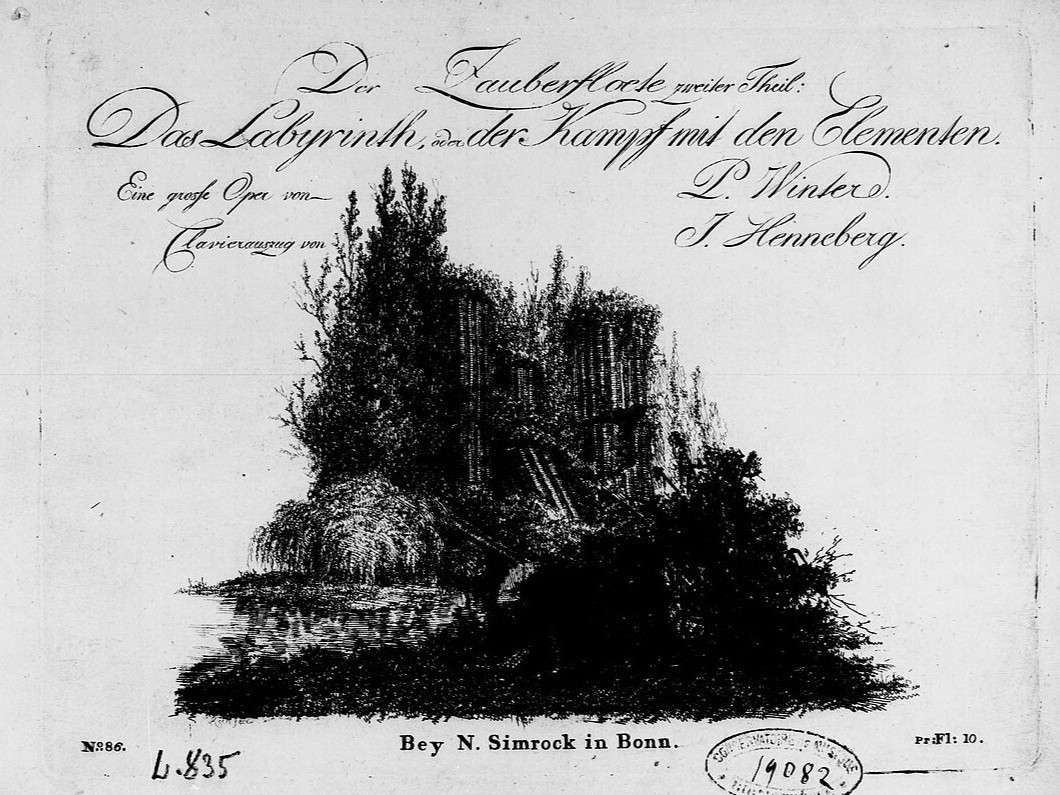 Der Zauberfloete zweiter Theil:
Das Labyrinth, oder der Kampf mit den Elementen.
Eine grosse Oper von P. Winter.
Clavierauszug von J. Henneberg.
No. 86. Bey N. Simrock in Bonn. Pr: Fl: 10.
L.835
CONSERVATOIRE DE MUSIQUE
19082